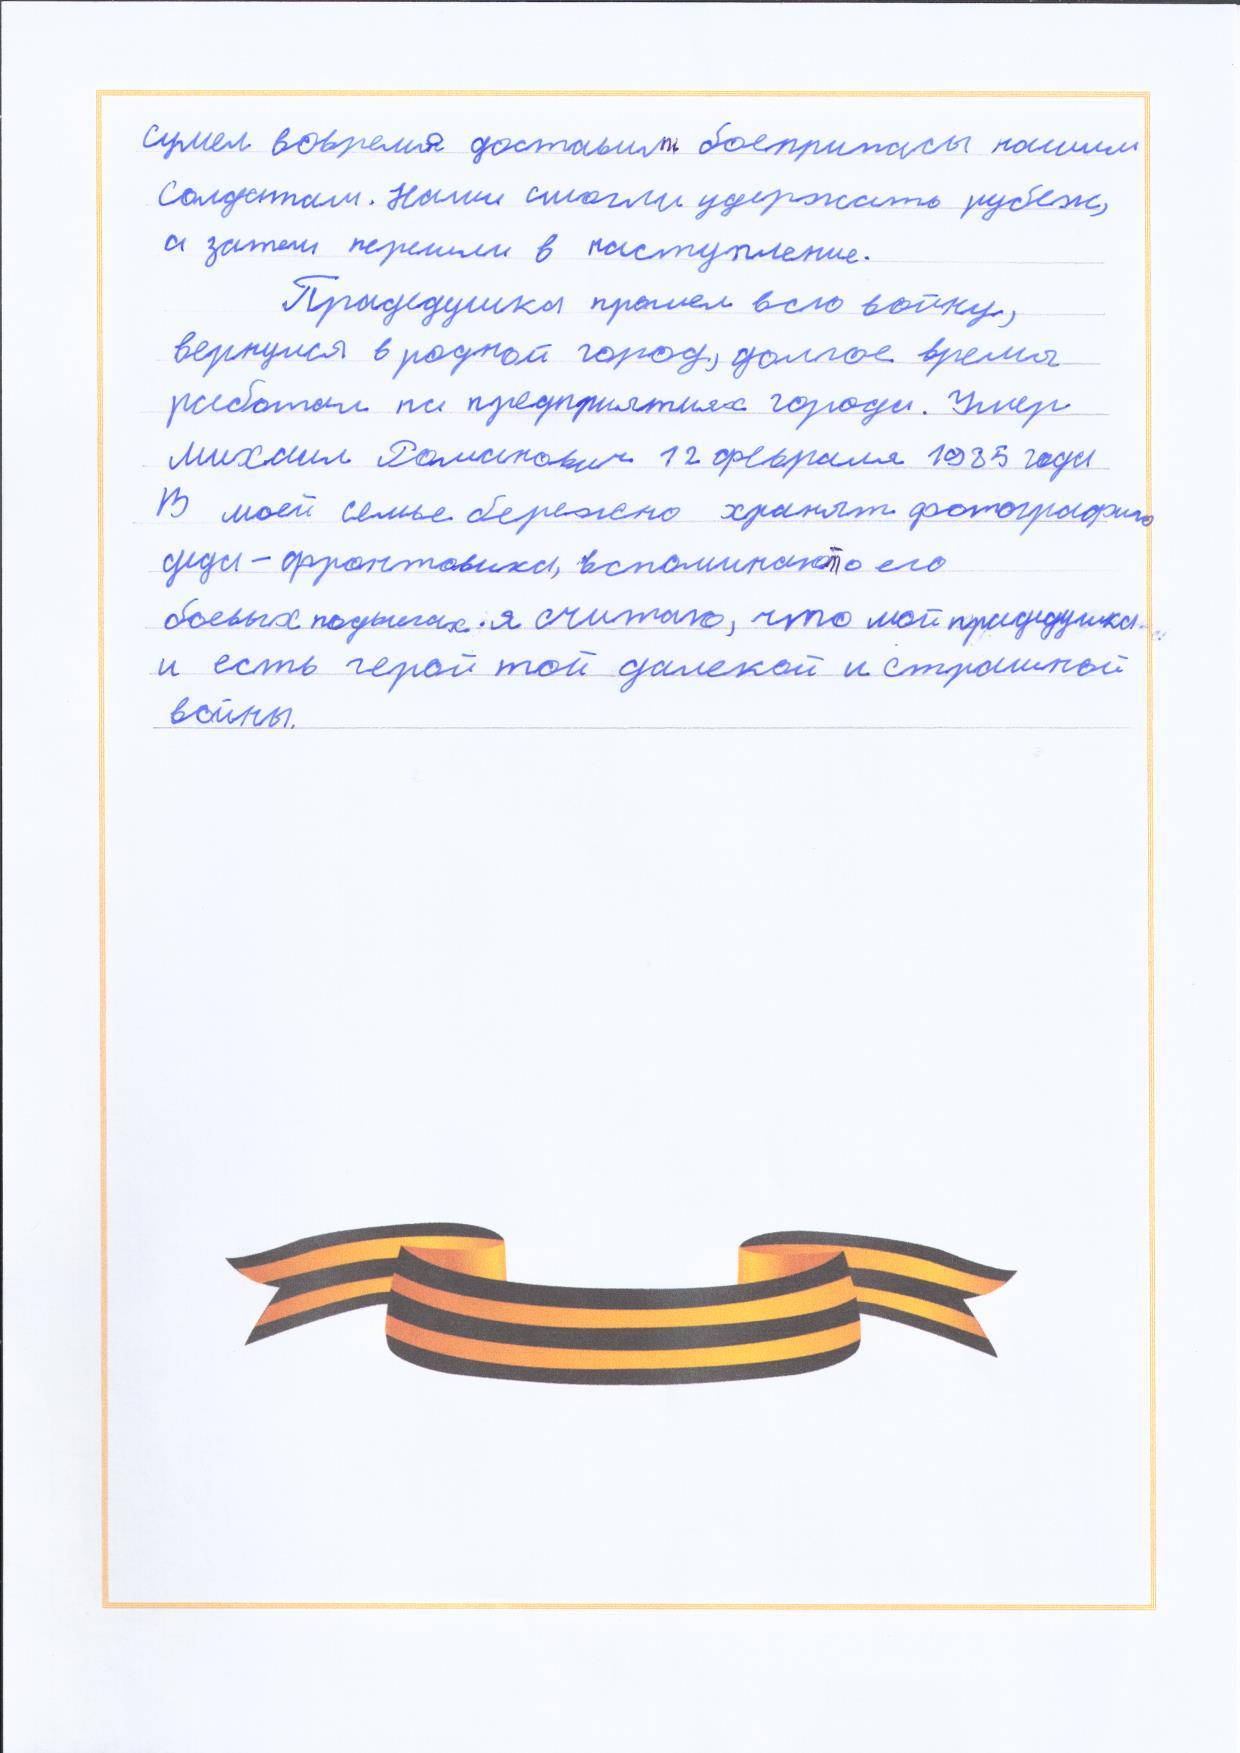 сумел вовремя доставит боеприпасы нашим
солдатам. Наши смогли удержать рубеж,
а затем перешли в наступление.
Прадедушка прошел всю войну,
вернулся в родной город, долгое время
работал на предприятиях города. Умер
Михаил Романович 12 февраля 1985 года
В моей семье бережно хранят фотографию
деда - фронтовика, вспоминают о его
боевых подвигах. я считаю, что мой прадедушка
и есть герой той далекой и страшной
войны.